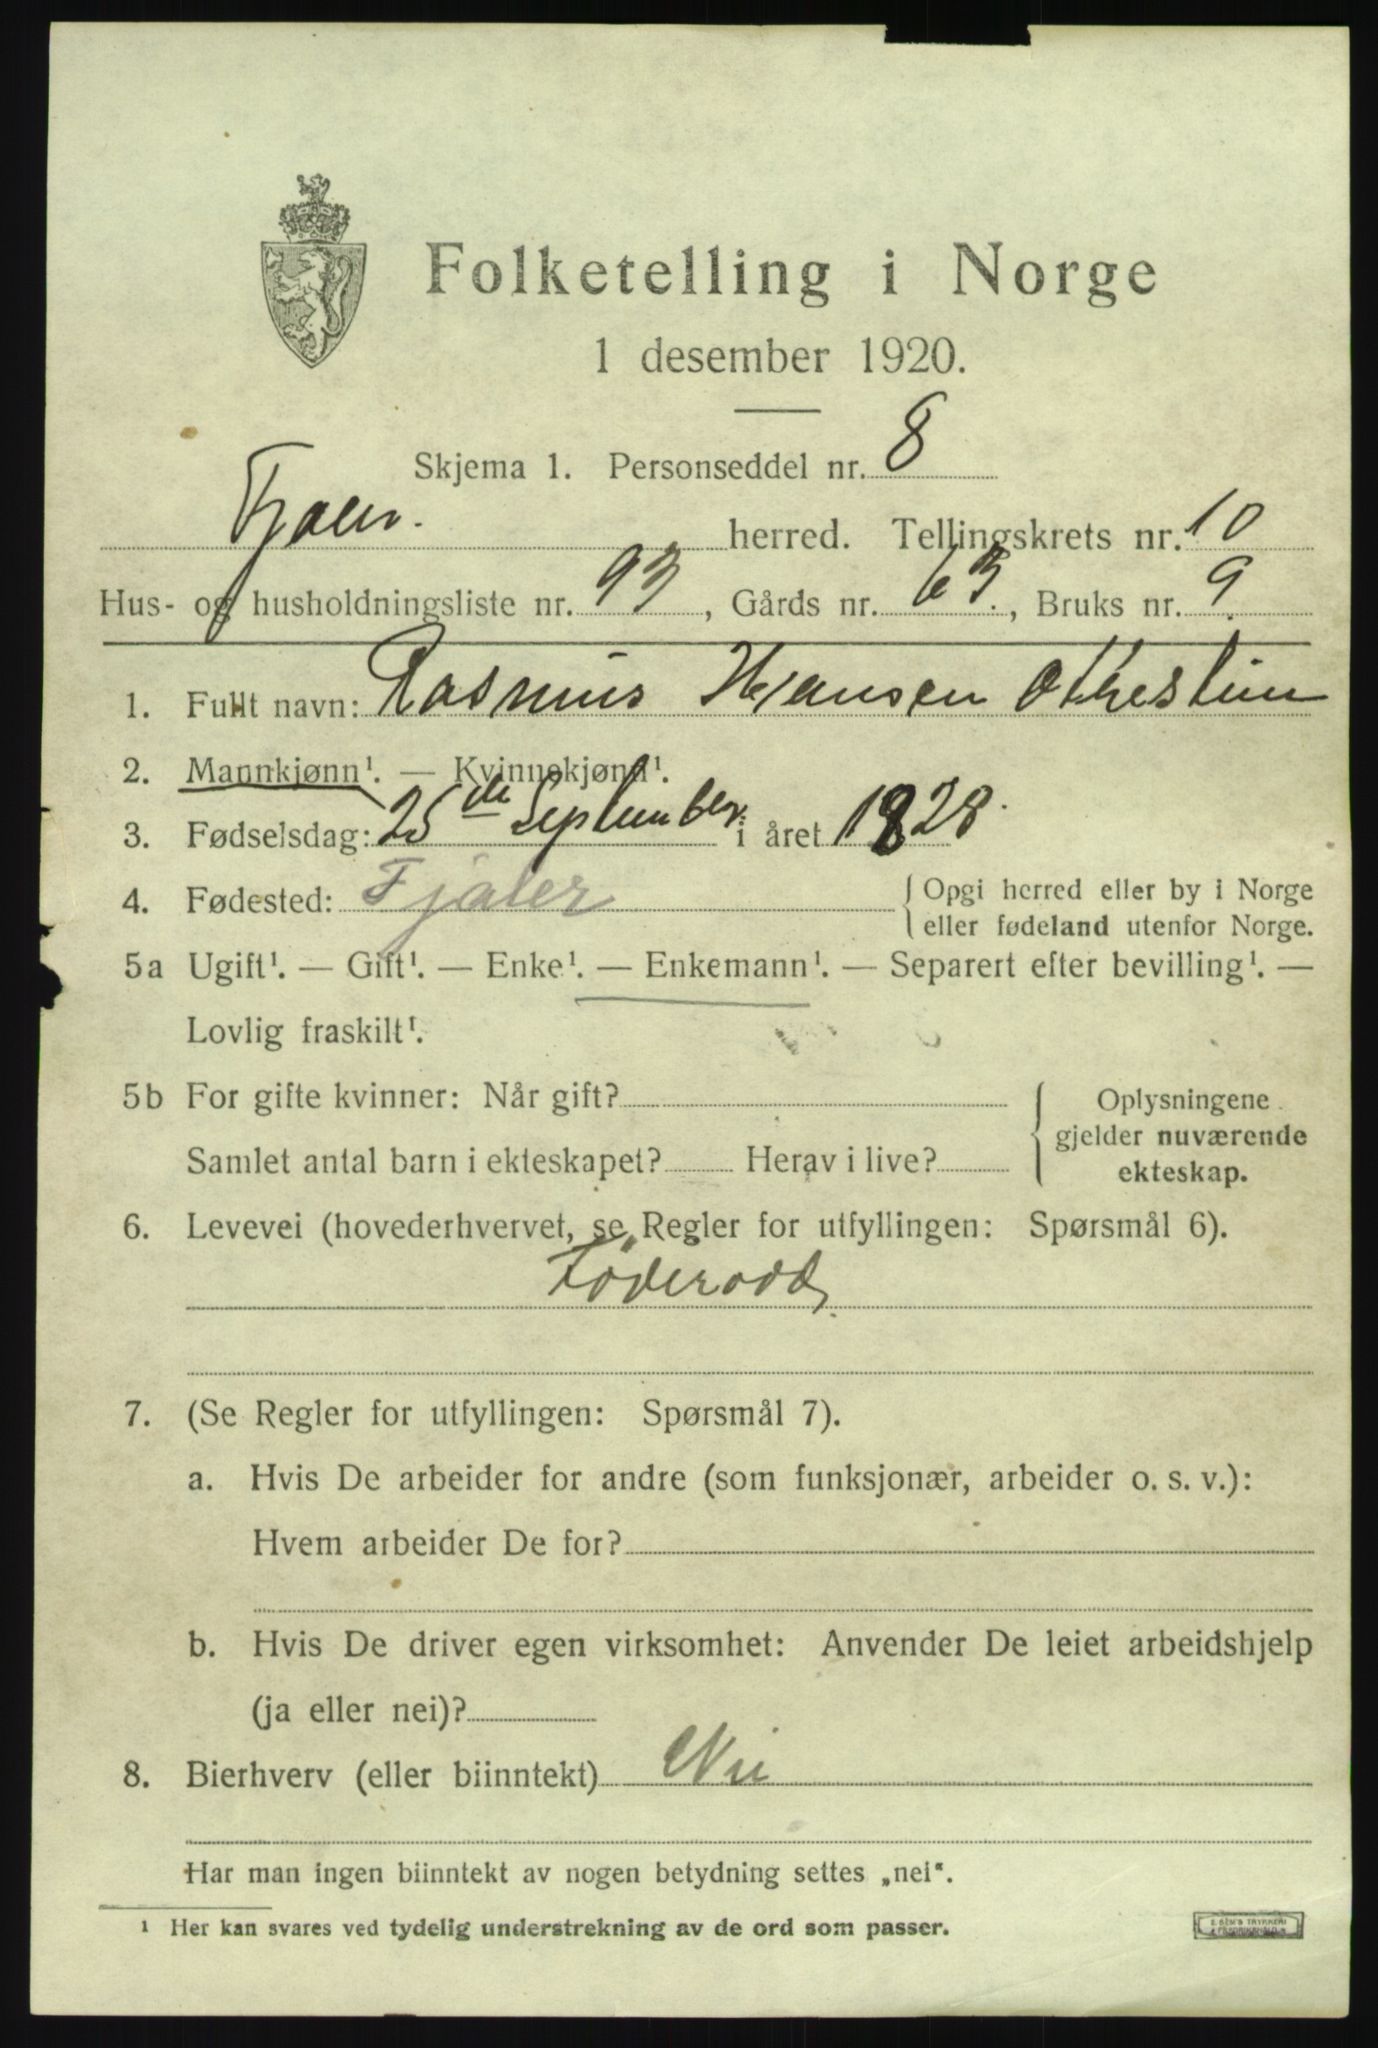 Folketelling i Norge
1 desember 1920.
Skjema 1. Personseddel nr. 8
Fjaler. herred. Tellingskrets nr. 10
Hus- og husholdningsliste nr. 93, Gårds nr. 63., Bruks nr. 9.
1. Fullt navn: Rasmus Hansen
2. Mannkjønn¹. — Kvinnekjønn¹.
3. Fødselsdag: 25de September. i året 1828.
4. Fødested: Fjaler { Opgi herred eller by i Norge
eller fødeland utenfor Norge.
5a Ugift¹. — Gift¹. — Enke¹. — Enkemann¹. — Separert efter bevilling¹. —
Lovlig fraskilt¹.
5b For gifte kvinner: Når gift? { Oplysningene
gjelder nuværende
Samlet antal barn i ekteskapet? Herav i live? ekteskap.
6. Levevei (hovederhvervet, se Regler for utfyllingen: Spørsmål 6).
Føderaad
7. (Se Regler for utfyllingen: Spørsmål 7).
a. Hvis De arbeider for andre (som funksjonær, arbeider o. s. v.):
Hvem arbeider De for?
b. Hvis De driver egen virksomhet: Anvender De leiet arbeidshjelp
(ja eller nei)?
8. Bierhverv (eller biinntekt) Nei
Har man ingen biinntekt av nogen betydning settes „nei“.
¹ Her kan svares ved tydelig understrekning av de ord som passer.
E. SEM'S TRYKKERI
FREDRIKSHALD